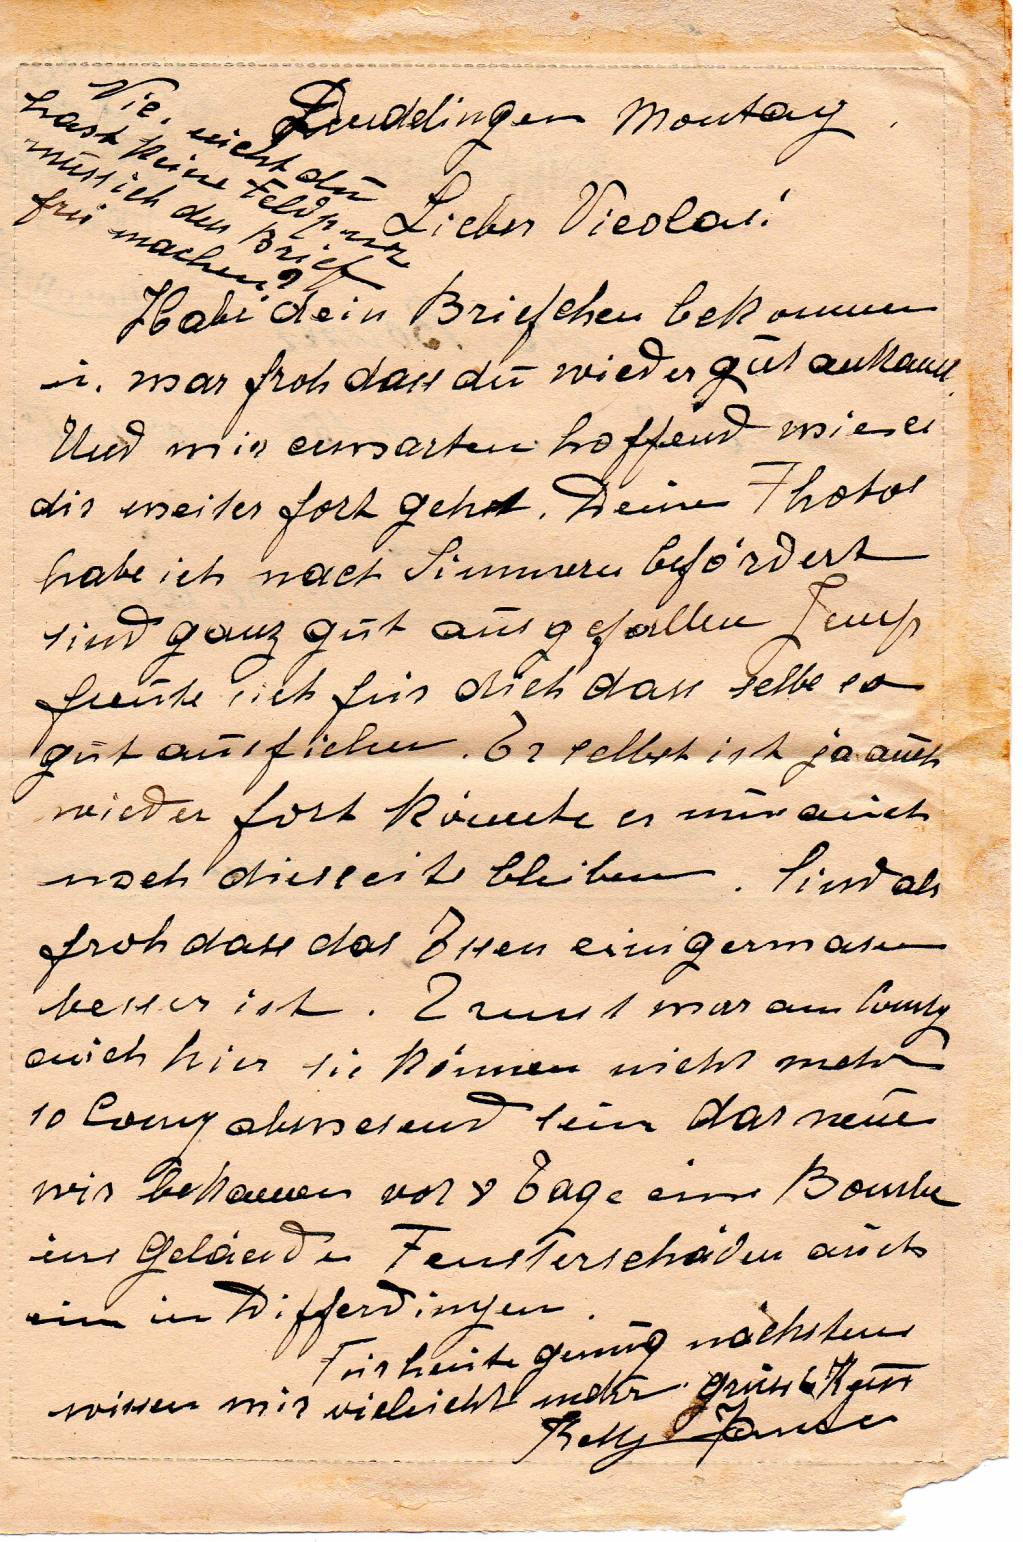 nicht du
hast keine Feldp nr
muss ich den Brief
frei machen?
Montag
Lieber Nicolas!
Habe dein Briefchen bekommen
u. war froh dass du wieder gut ankamst.
Und wir erwarten hoffend wie es
dir weiter fort geht. Deine Photos
habe ich nach Simmern befördert
sind ganz gut ausgefallen
freute sich für dich dass selbe so
gut ausfielen. Er selbst ist ja auch
wieder fort könnte er nur auch
noch diesseits bleiben. Sind als
froh dass das Essen einigermasen
besser ist. Ernest war am
auch hier sie können nicht mehr
so abwesend sein das neue
wir bekamen vor 8 Tage eine Bombe
ins Gelände Fensterschäden auch
in Differdingen.
Für heute genug nächstens
wissen wir vieleicht mehr. Gruss & Kuss